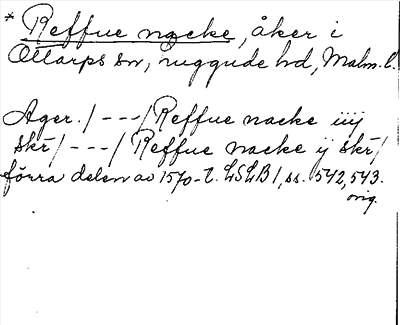 * Reffue nacke, åker i
Ottarps sn, ruggude hd, Malm. l.
Ager. / - - - / Reffue nacke iiij
skr / - - - / Reffue nacke ij skr /
förra delen av 1570-t. LSLB 1, ss. 542, 543.
orig.